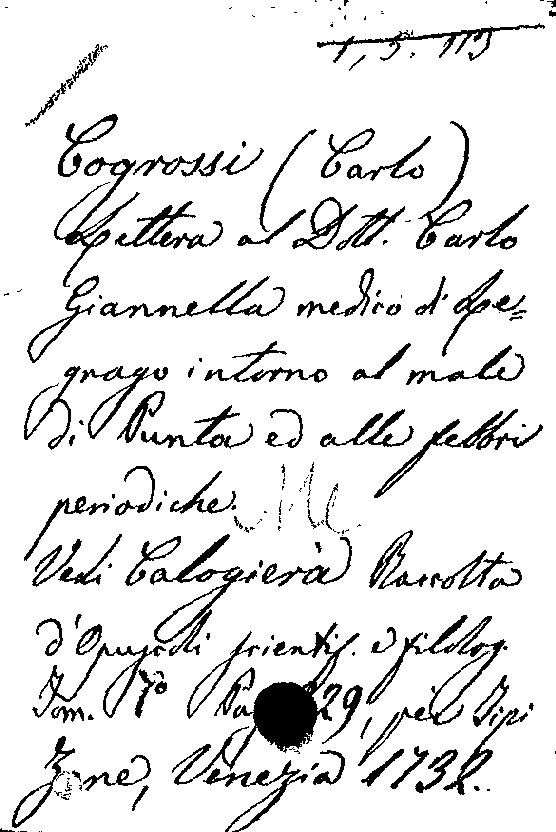 1, 5. 113
Cogrossi (Carlo)
Lettera al Dott. Carlo
Giannella medico di Le=
gnago intorno al male
di Punta ed alle febbri
periodiche.
Vedi Calogierà Raccolta
d'Opuscoli scientif. e filolog.
Tom. 7º 29, per Tipi
Zane, Venezia 1732.